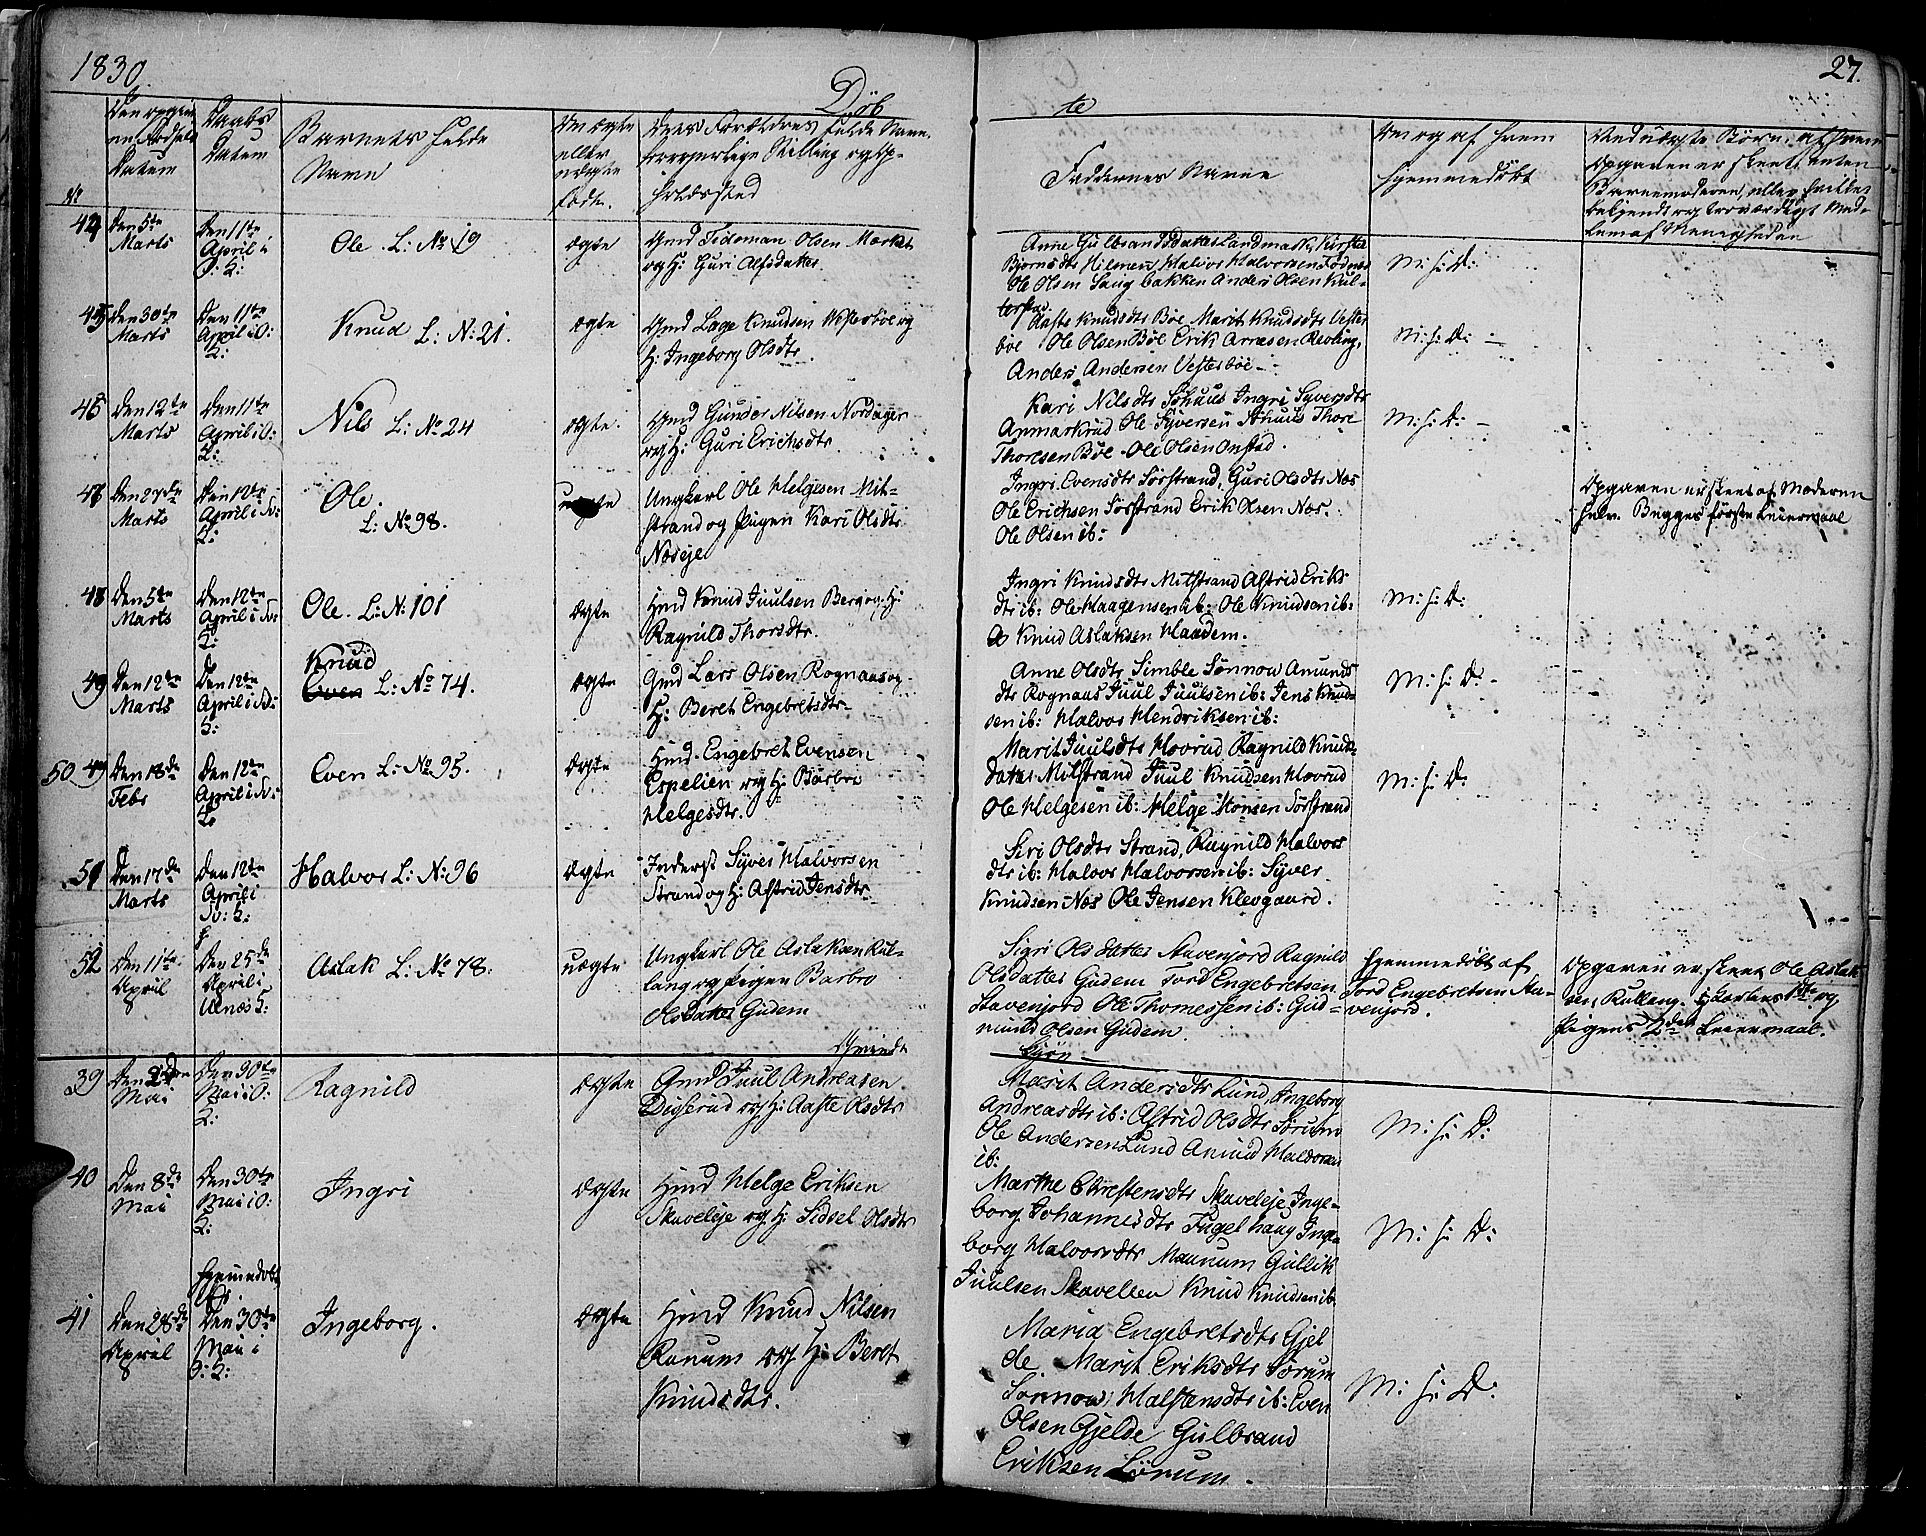 1830.
27.
Døb
te
No
Den egent
Fødsels
Datum
Daabs
Datum
Barnets fulde
Navn
Om ægte
eller
uægte
født.
Dets Forældres fulde Navne,
Stilling og Op-
holdssted
Faddernes Navne
Om og af hvem
hjemmedøbt
Ved uægte Børn; af hvem
Opgaven er skeet, enten
Barnemoderen, eller hvilket
bekjendt og troværdigt Med-
lem af Menigheden
44
Den 5te
Marts
Den 11te
April i
O: K:
Ole. L: No 19
ægte
Gmd Tideman Olsen
og H: Guri Alfsdatter.
Anne Gulbrandsdatter Landmark, Kirsti
Bjørnsdtr Hilmen, Halvor Halvorsen
Ole Olsen Haugbakken Anders Olsen Kul-
terstu
M: h: D:
45
Den 30te
Marts
Den 11te
April i O:
K:
Knud L: N: 21.
ægte
Gmd Lage Knudsen Vesterbøe og
H: Ingeborg Olsdtr.
Aaste Knudsdtr Bøe Marit Knudsdtr Vester
bøe Ole Olsen Bøe Erik Arnesen
Anders Andersen Vesterbøe
M: h: D: —
46
Den 12te
Marts
Den 11te
April i O:
K:
Nils L: No 24
ægte.
Gmd Gunder Nilsen Nordager
og H: Guri Erichsdtr.
Kari Nilsdtr Ingri Syversdtr
Anmarkrud Ole Syversen Thore
Thoresen Bøe. Ole Olsen Onstad.
M: h: D: —
47
Den 27de
Marts
Den 12te
April i Sv:
K:
Ole.
L: No 98.
uægte
Ungkarl Ole Helgesen Mit-
strand og Pigen Kari Olsdtr
Næseje
Ingri Evensdtr Sørstrand, Guri Olsdtr Næs
Ole Erichsen Sørstrand Erik Olsen Næs.
Ole Olsen ib:
Opgaven er skeet af Moderen
selv. Begges første Leiermaal
48
Den 5te
Marts
Den 12te
April i Sv:
K:
Ole. L: N: 101
ægte
Hmd Knud Juulsen Berg og H:
Ragnild Thorsdtr.
Ingri Knudsdtr Mitstrand Astrid Eriks-
dtr ib: Ole Haagensen ib: Ole Knudsen ib:
Knud Aslaksen Haadem.
M: h: D:
49
Den 12te
Marts
Den 12te
April i Sv:
K:
Knud
Even L: No 74.
ægte
Gmd Lars Olsen Rognaas og
H: Beret Engebretsdtr.
Anne Olsdtr Simble Sønnow Amunds
dtr Rognaas Juul Juulsen ib: Jens Knud-
sen ib: Halvor Hendriksen ib:
M: h: D:
50 49
Den 18de
Febr
Den 12te
April i Sv:
K:
Even L: No 95.
ægte
Hmd. Engebret Evensen
Espelien og H: Barbro
Helgesdtr.
Marit Juulsdtr Hovrud Ragnild Knuds-
datter Mitstrand Juul Knudsen Hovrud
Ole Helgesen ib: Helge Hansen Sørstrand
M: h: D:
51
Den 17de
Marts
Den 12te
April i
Sv: K:
Halvor L: N: 96
ægte
Inderst Syver Halvorsen
Strand og H: Astrid Jensdtr
Siri Olsdtr Strand, Ragnild Halvors
dtr ib: Halvor Halvorsen ib: Syver
Knudsen Næs Ole Jensen Klevgaard.
52
Den 11te
April
Den 25de
April i
Ulnæs K:
Aslak L: No 78.
uægte
Ungkarl Ole Aslaksen Kul-
lang og Pigen Barbro
Olsdatter Gudem
Sigri Olsdatter Stavenjord Ragnild
Olsdatter Gudem Tord Engebretsen
Stavenjord Ole Thomessen ib: Gud-
mund Olsen Gudem.
Hjemmedøbt af
Tord Engebretsen Sta-
venjord.
Opgaven er skeet Ole Aslak-
sen Kullang. Karlens 1ste og
Pigens 2det Leiermaal.
Qvinde
kjøn
39
Den
Mai
Den 30te
Mai i O:
K:
Ragnild
ægte
Gmd Juul Andreasen
Digerud og H: Aaste Olsdtr
Marit Andersdtr Lund, Ingeborg
Andreasdtr ib: Astrid Olsdtr Sørum
Ole Andersen Lund Amund Halvorsen
ib:
M: h: D:
40
Den 8de
Mai
Den 30te
Mai i O:
K:
Ingri
ægte
Hmd Helge Eriksen
Skaveleje og H: Sidsel Olsdtr
Marthe Christensdtr Skaveleje Inge-
borg Johannesdtr Fugelhaug Inge-
borg Halvorsdtr Maurum Gullik
Juulsen Skavelien Knud Knudsen ib
M: h: D:
41
Den 28de
April
Hjemmedøbt
Den 30te
Mai i
O: K:
Ingeborg.
ægte
Hmd Knud Nilsen
Ranum og H: Beret
Knudsdtr.
Maria Engebretsdtr Gjel
de Marit Eriksdtr Sørum
Sønnow Halstensdtr ib: Even
Olsen Gjelde Gulbrand
Eriksen Sørum.
M: h: D: